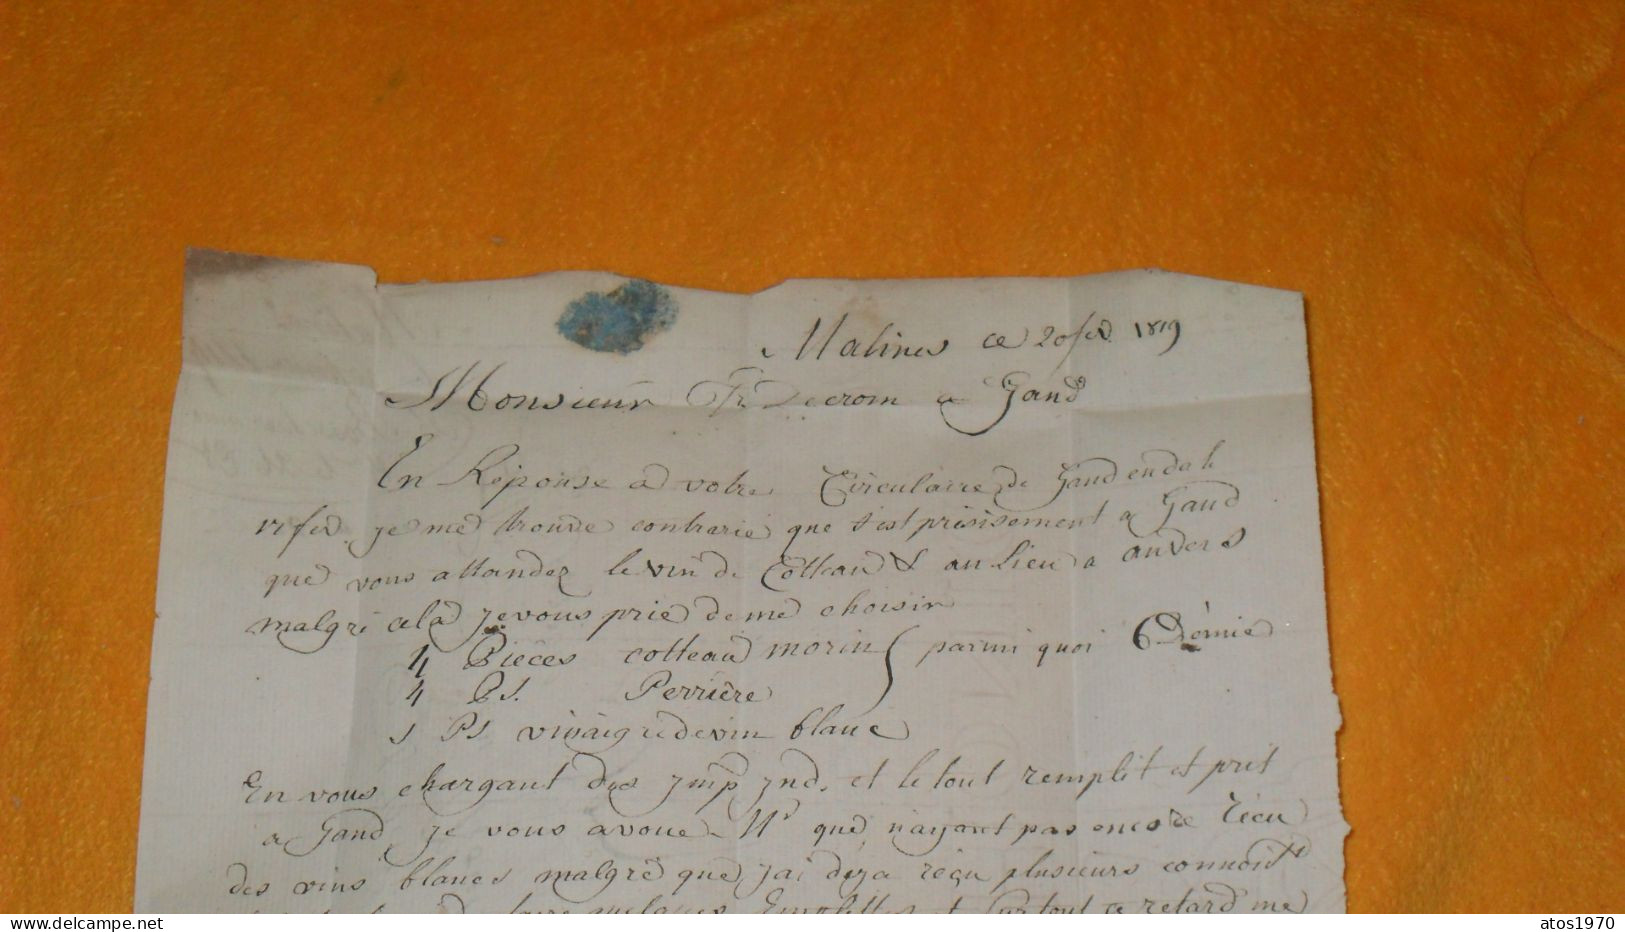 Malines ce 20 fev. 1819
Monsieur Fr. Decrom a Gand
En Réponse a votre Circulaire de Gand en dat
17 fev. je me trouve contrarié que s'est présisement a Gand
que vous attandez le vin de Cotteaux au lieu a anvers
malgré cela je vous prie de me choisir
4 Pieces cotteau morin } parmi quoi 6 Demie
4 Ps. Perrière
1 Ps vinaigre de vin blanc
En vous chargant des jmp jnd. et le tout remplit et pret
a Gand, je vous avoue Mr que n'ayant pas encore réçu
des vins blancs malgré que j'ai deja réçu plusieurs connoist
faire mes Emplettes et surtout ce retard me
delcampe.net
atos1970